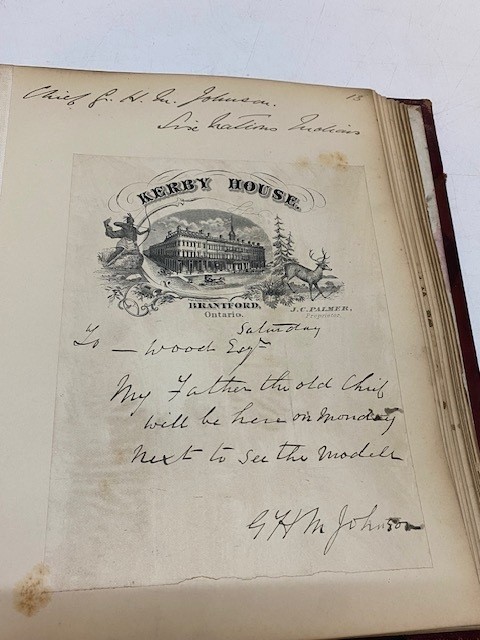 Chief G. H. M. Johnson.
15
Six Nations Indians
KERBY HOUSE.
BRANTFORD,
Ontario.
J.C. PALMER,
Proprietor.
Saturday
To — Wood Esqre
My Father the old Chief
will be here on Monday
next to see the Models
G H M Johnson